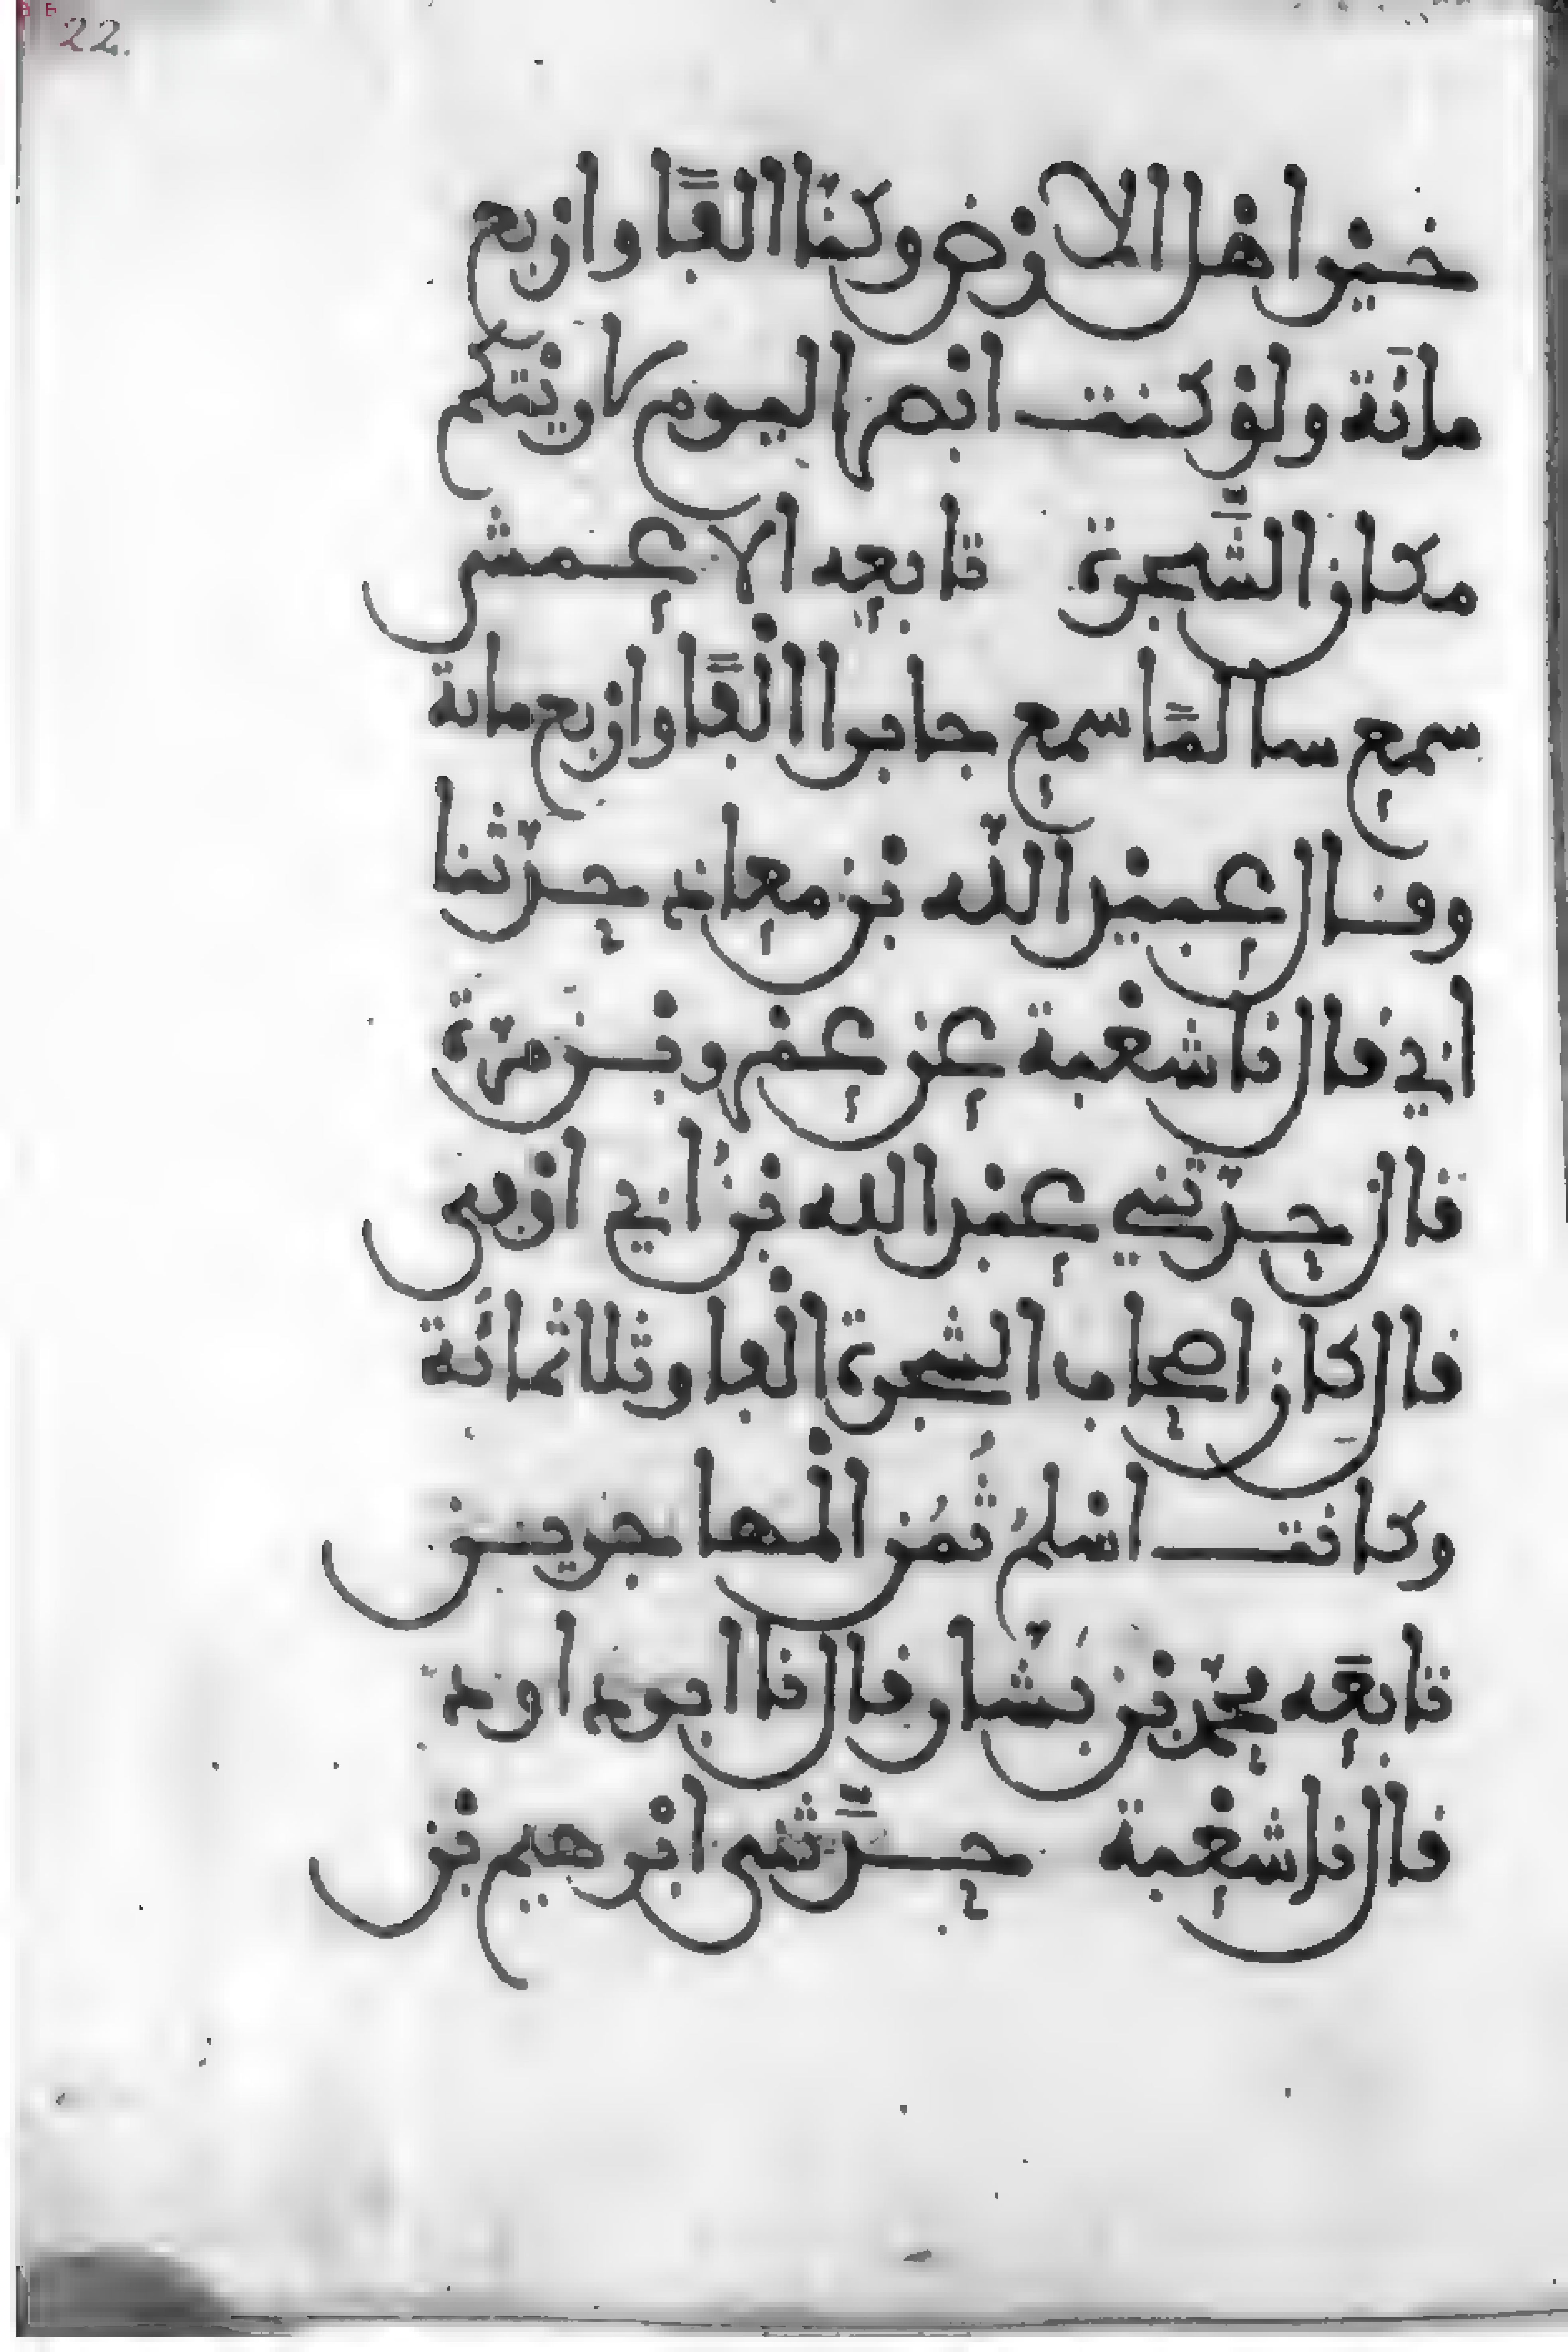 22.
خير اهل الارض وكنا الفا واربع
مائة ولو كنت ابصر اليوم لاريتكم
مكان الشجرة تابعه الاعمش
سمع سالما سمع جابرا الفا واربع مائة
وقال عبيد الله بن معاذ حدثنا
ابي قال نا شعبة عن عمرو بن مرة
قال حدثني عبد الله بن ابي اوفى
قال كان اصحاب الشجرة الفا وثلاثمائة
وكانت اسلم ثمن المهاجرين
تابعه محمد بن بشار قال نا ابو داود
قال نا شعبة حدثني ابرهيم بن